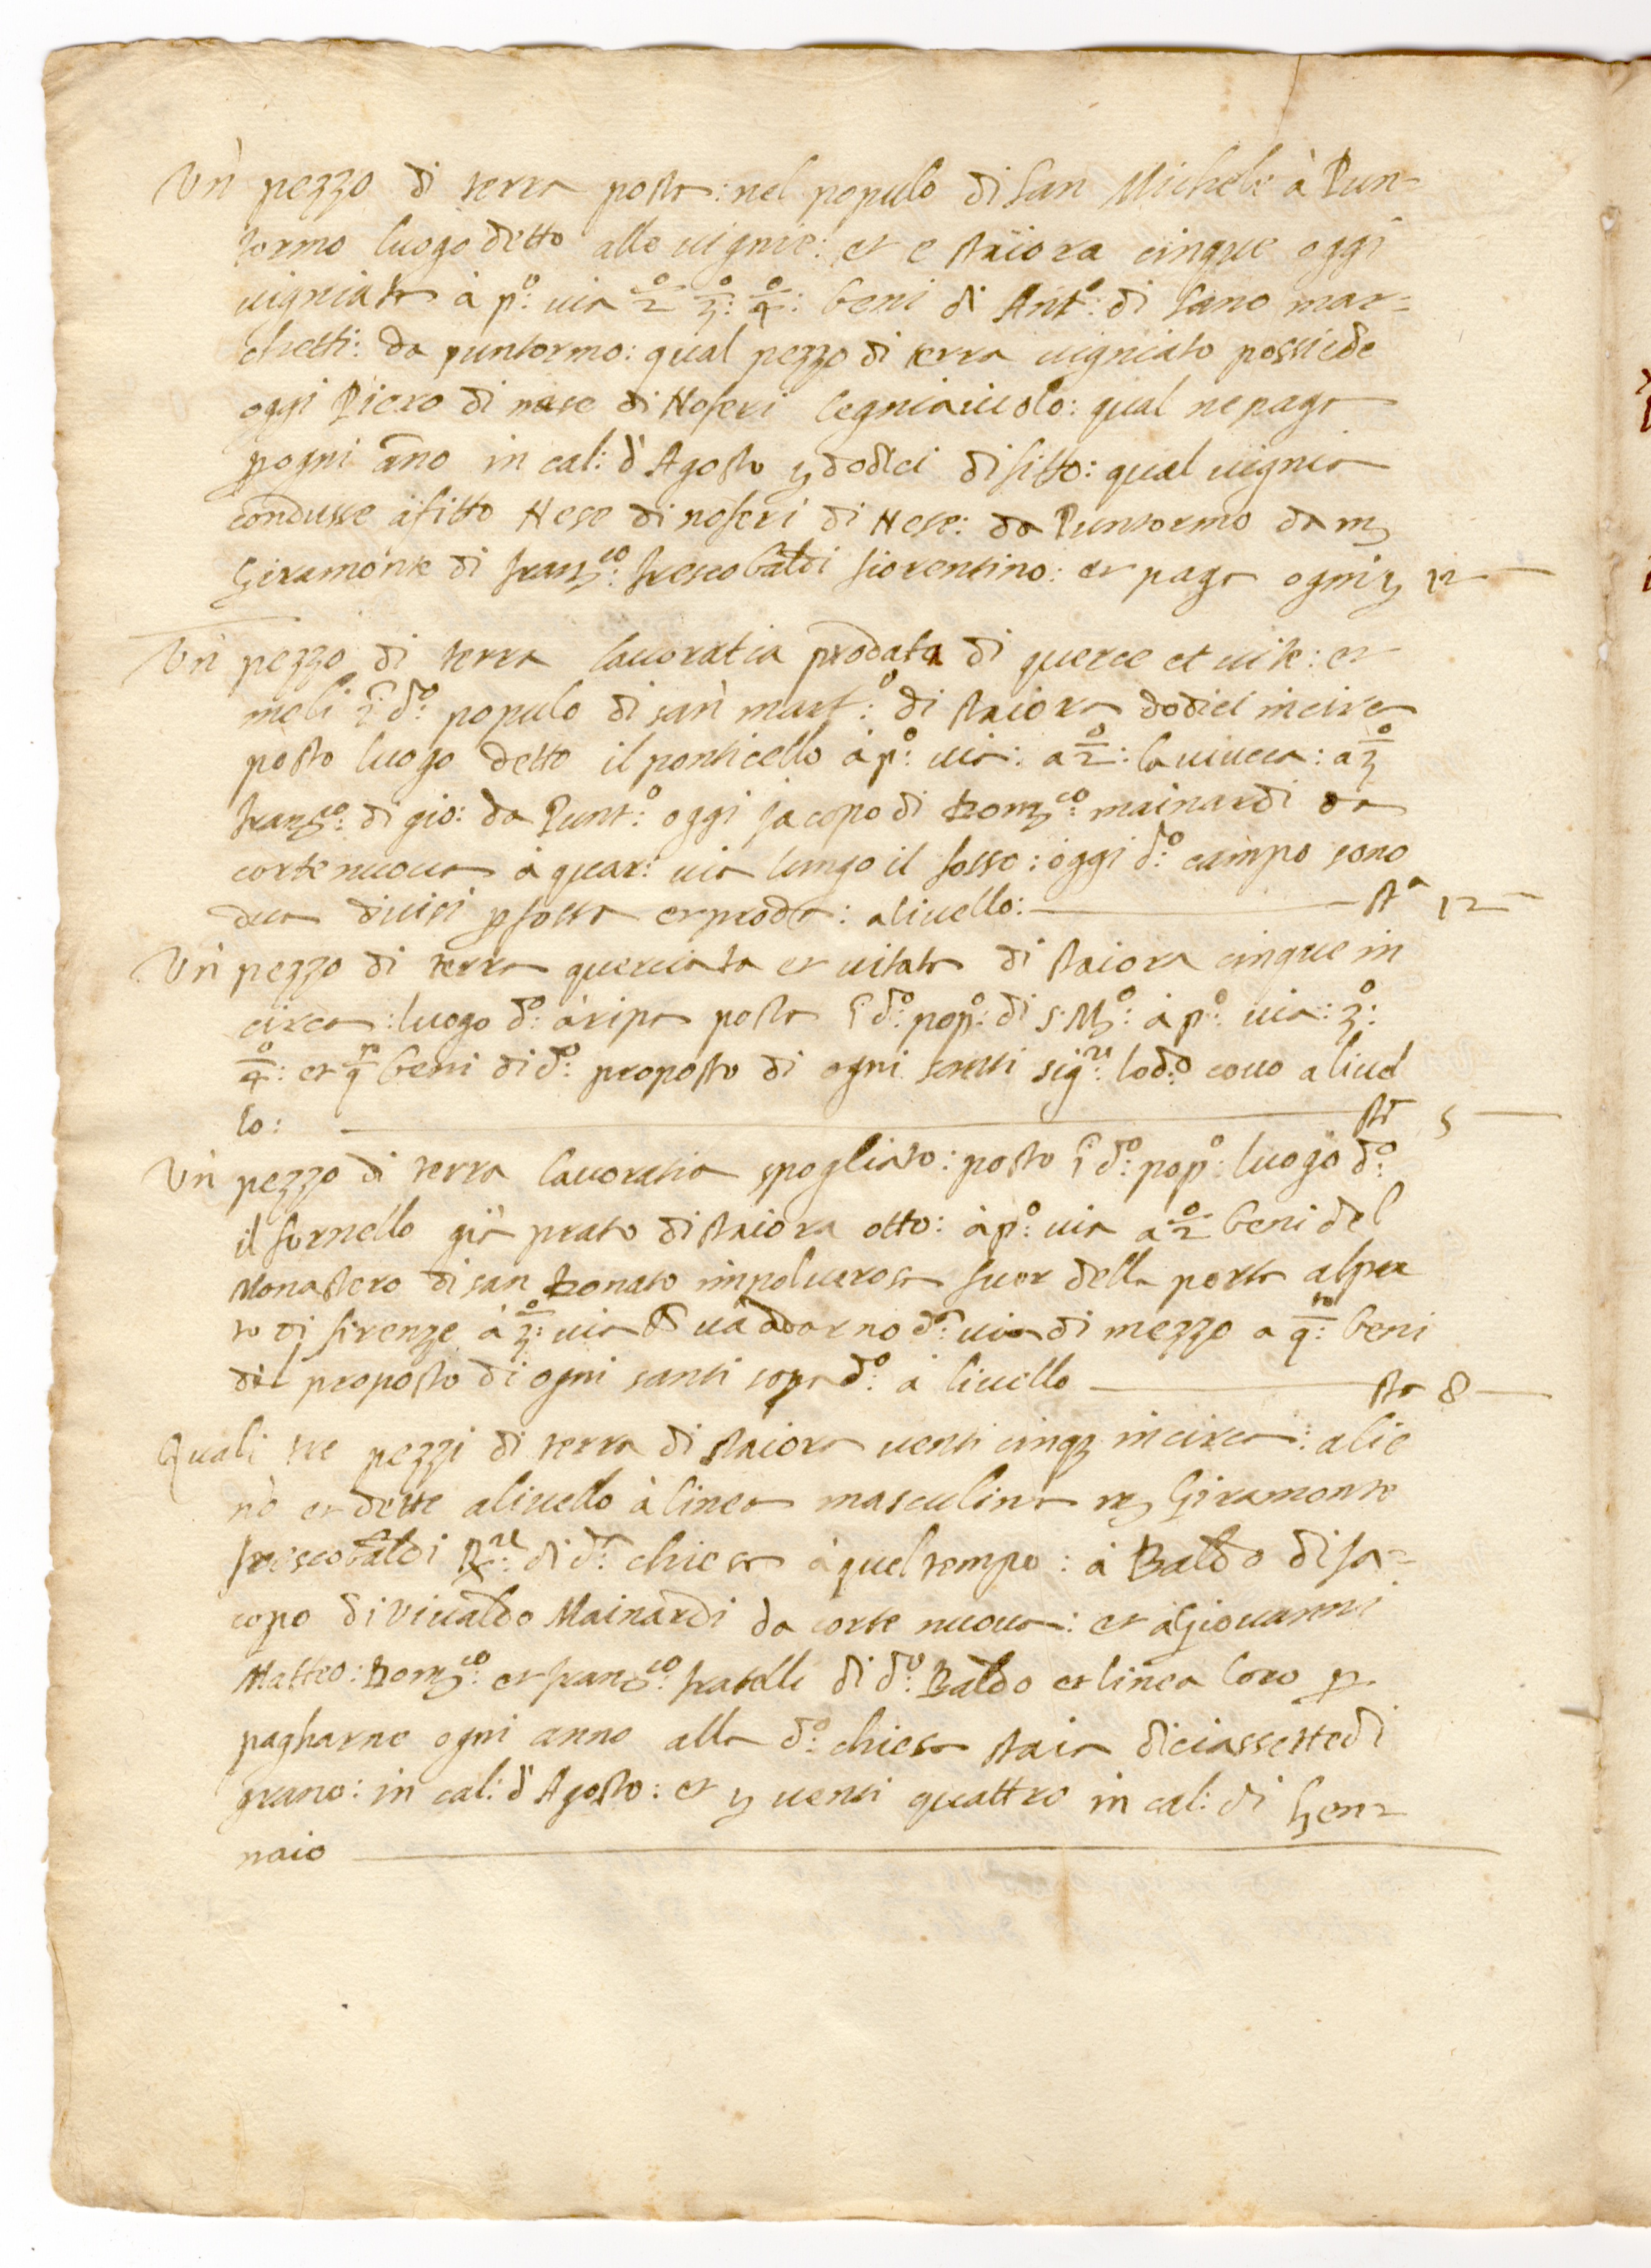 Un pezzo di terra posta: nel populo di San Michele à Pun-
tormo luogo detto alle uignie: et e staiora cinque oggi
uigniato à p.º: uia 2º 3º: 4º: beni di Ant.º: di Sano mar=
chetti: da puntormo: qual pezzo di terra uigniato possiede
oggi Piero di nese di Noferi legniaiuolo: qual ne paga
p ogni año in cal: d'Agosto ʒ dodici di fitto: qual uignia
condusse àfitto Nese di noferi di Nese: da Puntormo da mʒ
Giramonte di franʒco: frescobaldi fiorentino: et paga ogni ʒ 12
Un pezzo di terra lauoratia prodata di querce et uite: et
meli ĩ dº: populo di san mart.º: di staiora dodici incirca
posto luogo detto il ponticello à pº: uia: a 2º: la uiuccia: a 3º
franʒco: di gio: da Punt.º: oggi jacopo di Domʒco: mainardi da
corte nuoua à quar: uia lungo il fosso: oggi dº: campo sono
dua diuisi p fossa et proda: aliuello: st.ª 12
Un pezzo di terra querciata et uitata di staiora cinque in
circa: luogo dº: àripa posta ĩ dº: popº: di S: Mʒº: à pº: uia: 3º:
4º: et qto beni di dº: proposto di ogni santi sigre: lodº: couo a liuel
lo: st 5
Un pezzo di terra lauoratia spogliato: posto ĩ dº: popº: luogo dº:
il fornello già prato di staiora otto: à pº: uia a 2º beni del
Monastero di san Donato inpoluerosa fuor della porta alpra
to di firenze à 3º: uia uà ad arno dª: uia di mezzo a qto: beni
del proposto di ogni santi sopradº: à liuello sta 8
Quali tre pezzi di terra di staiora uenti cinqʒ incirca: alie
nò et dette aliuello à linea masculina mʒ Giramonte
frescobaldi Rre: di dª: chiesa à quel tempo: à Baldo di Ja=
copo di Viualdo Mainardi da corte nuoua: et àgiouanni
Matteo: Domʒco: et franco: fratelli di dº: Baldo et linea loro p
pagharne ogni anno alla dº: chiesa staia diciassette di
grano: in cal: d'Agosto: et ʒ uenti quattro in cal: di Gen=
naio